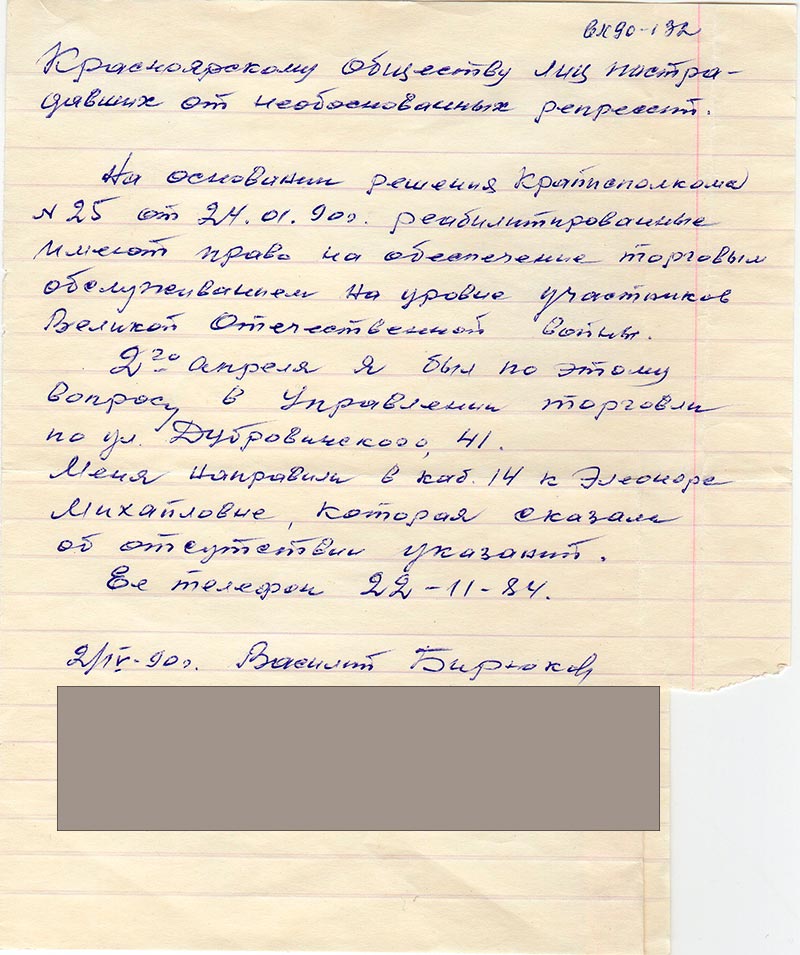 вх90-132
Красноярскому обществу лиц постра-
давших от необоснованных репрессий.
На основании решения Крайисполкома
N 25 от 24.01.90г. реабилитированные
имеют право на обеспечение торговым
обслуживанием на уровне участников
Великой Отечественной войны.
2го апреля я был по этому
вопросу в Управлении торговли
по ул. Дубровинского, 41.
Меня направили в каб. 14 к Элеоноре
Михайловне, которая сказала
об отсутствии указаний.
Ее телефон 22-11-84.
2/IV-90г. Василий Бирюков